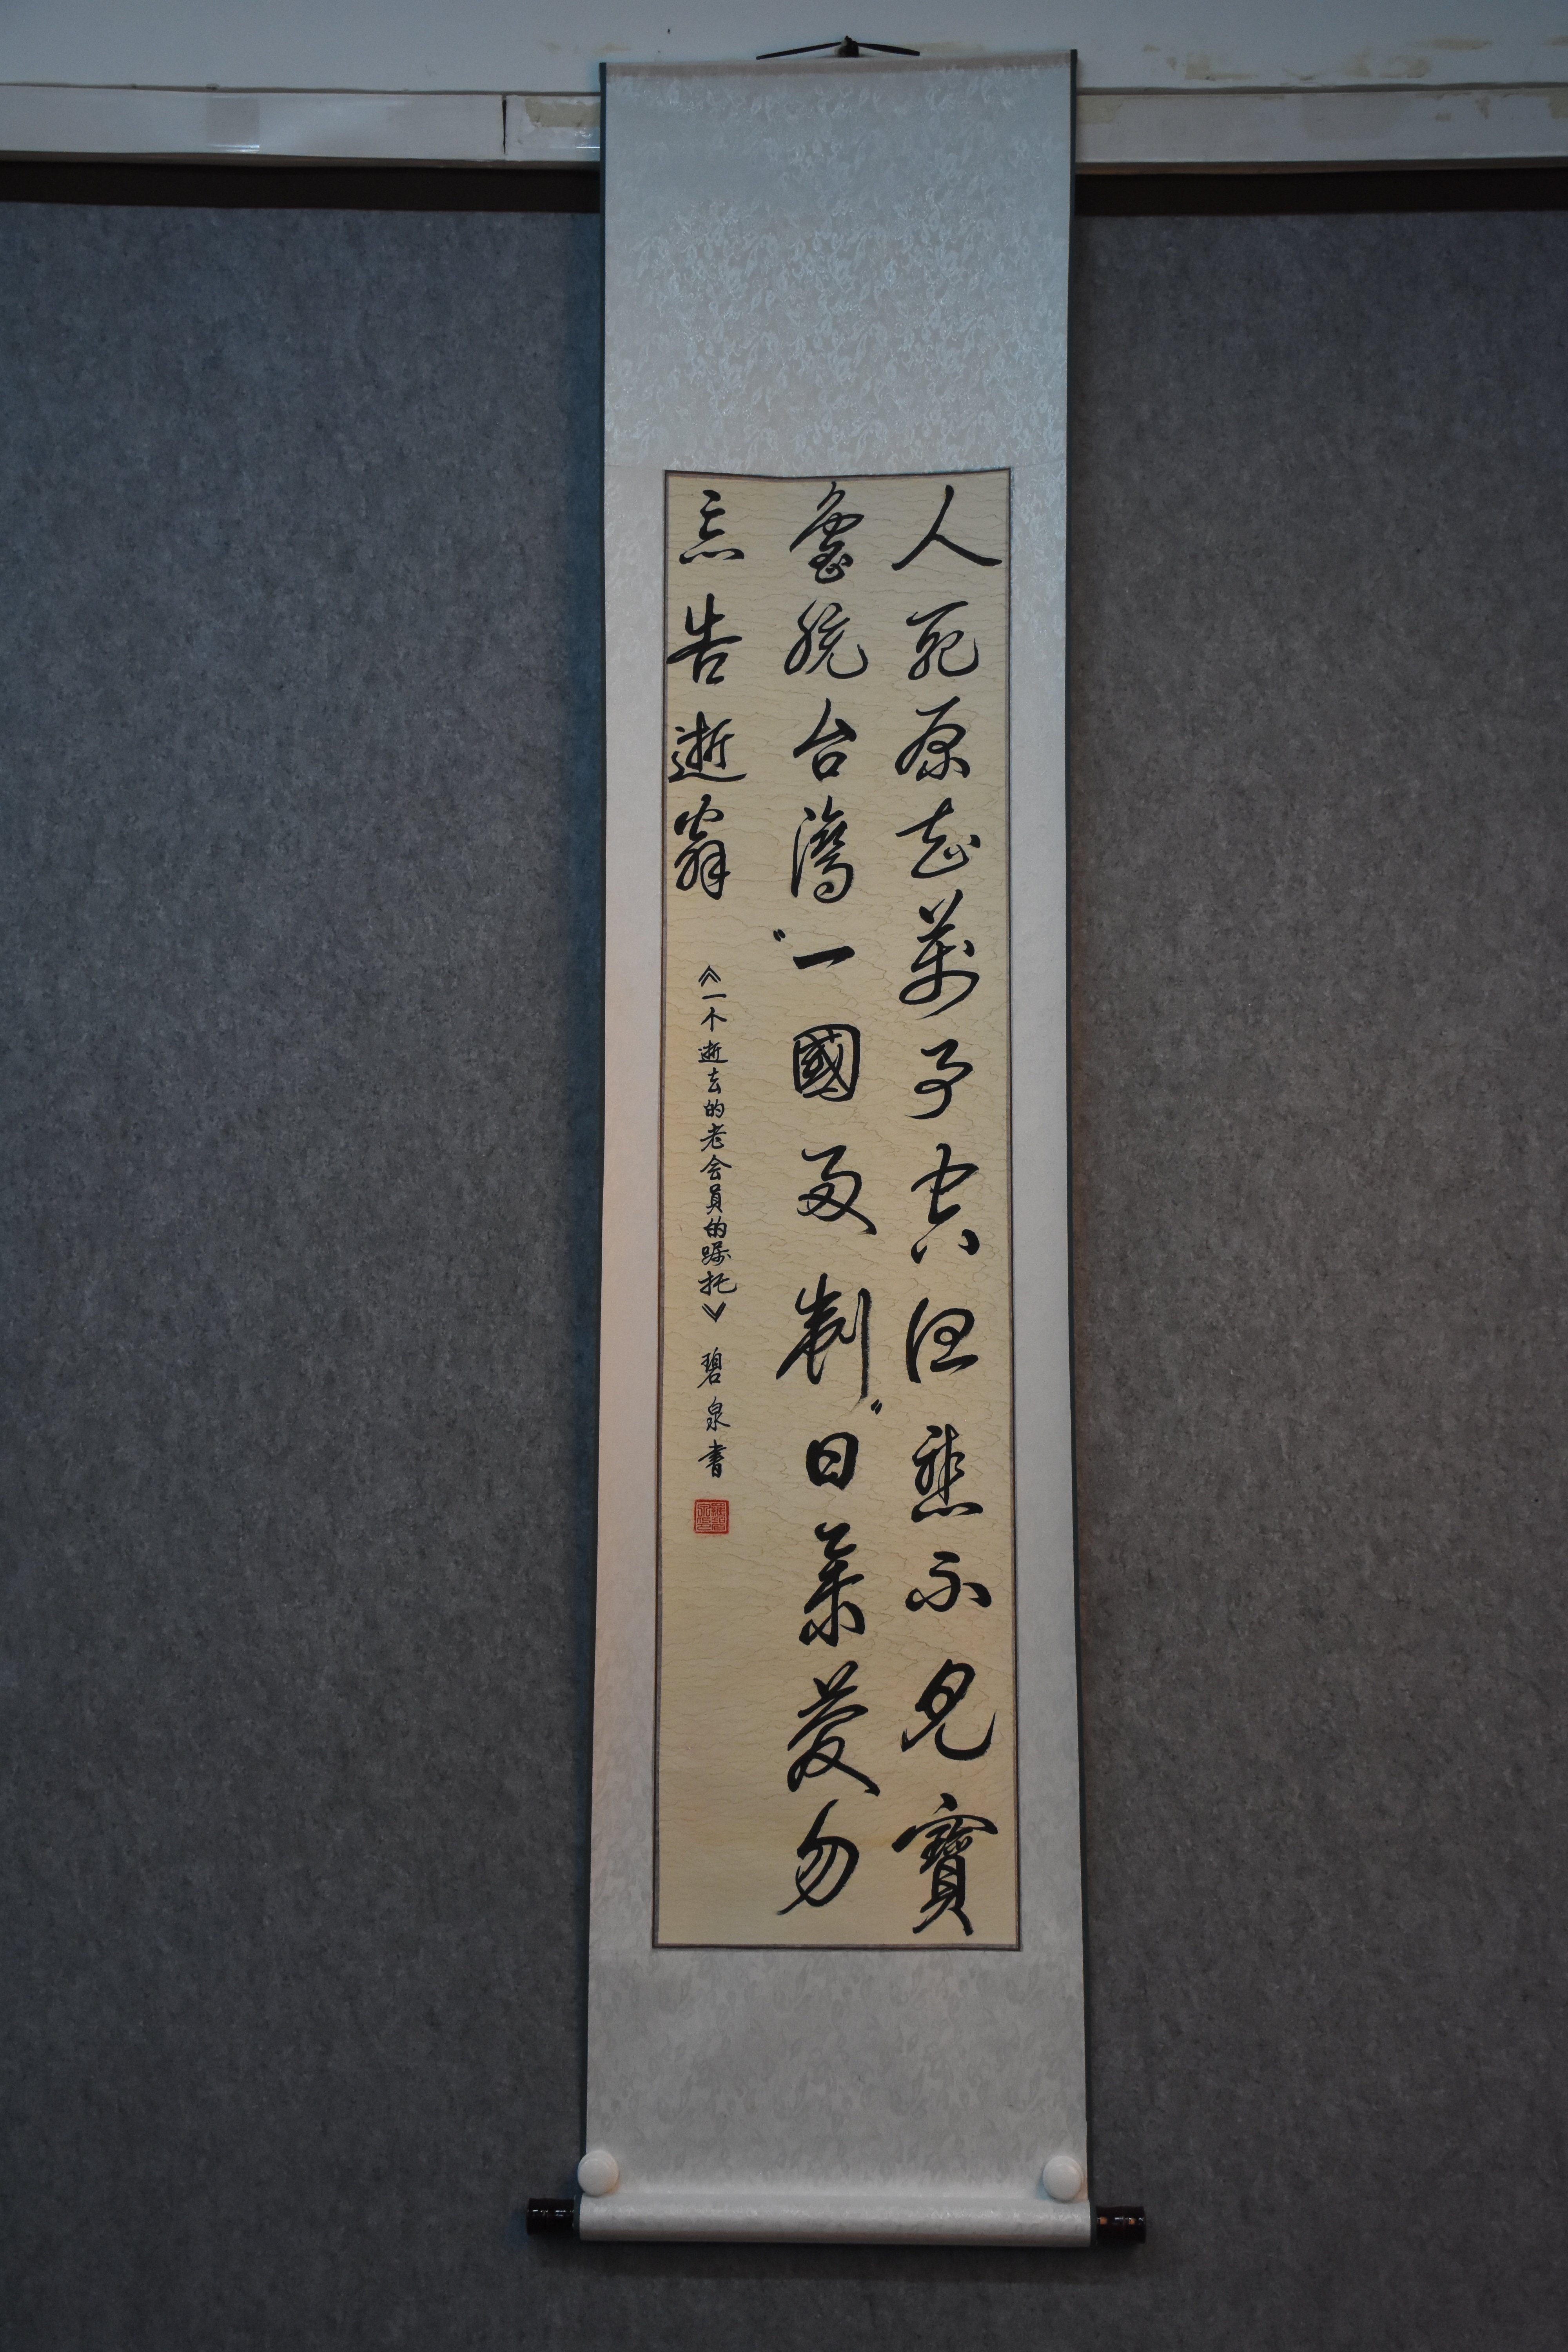 人死原知萬事空但悲不見寶
島統台灣“一國兩制”日勿
忘告逝翁
《一个逝去的老会員的嘱托》 碧泉書